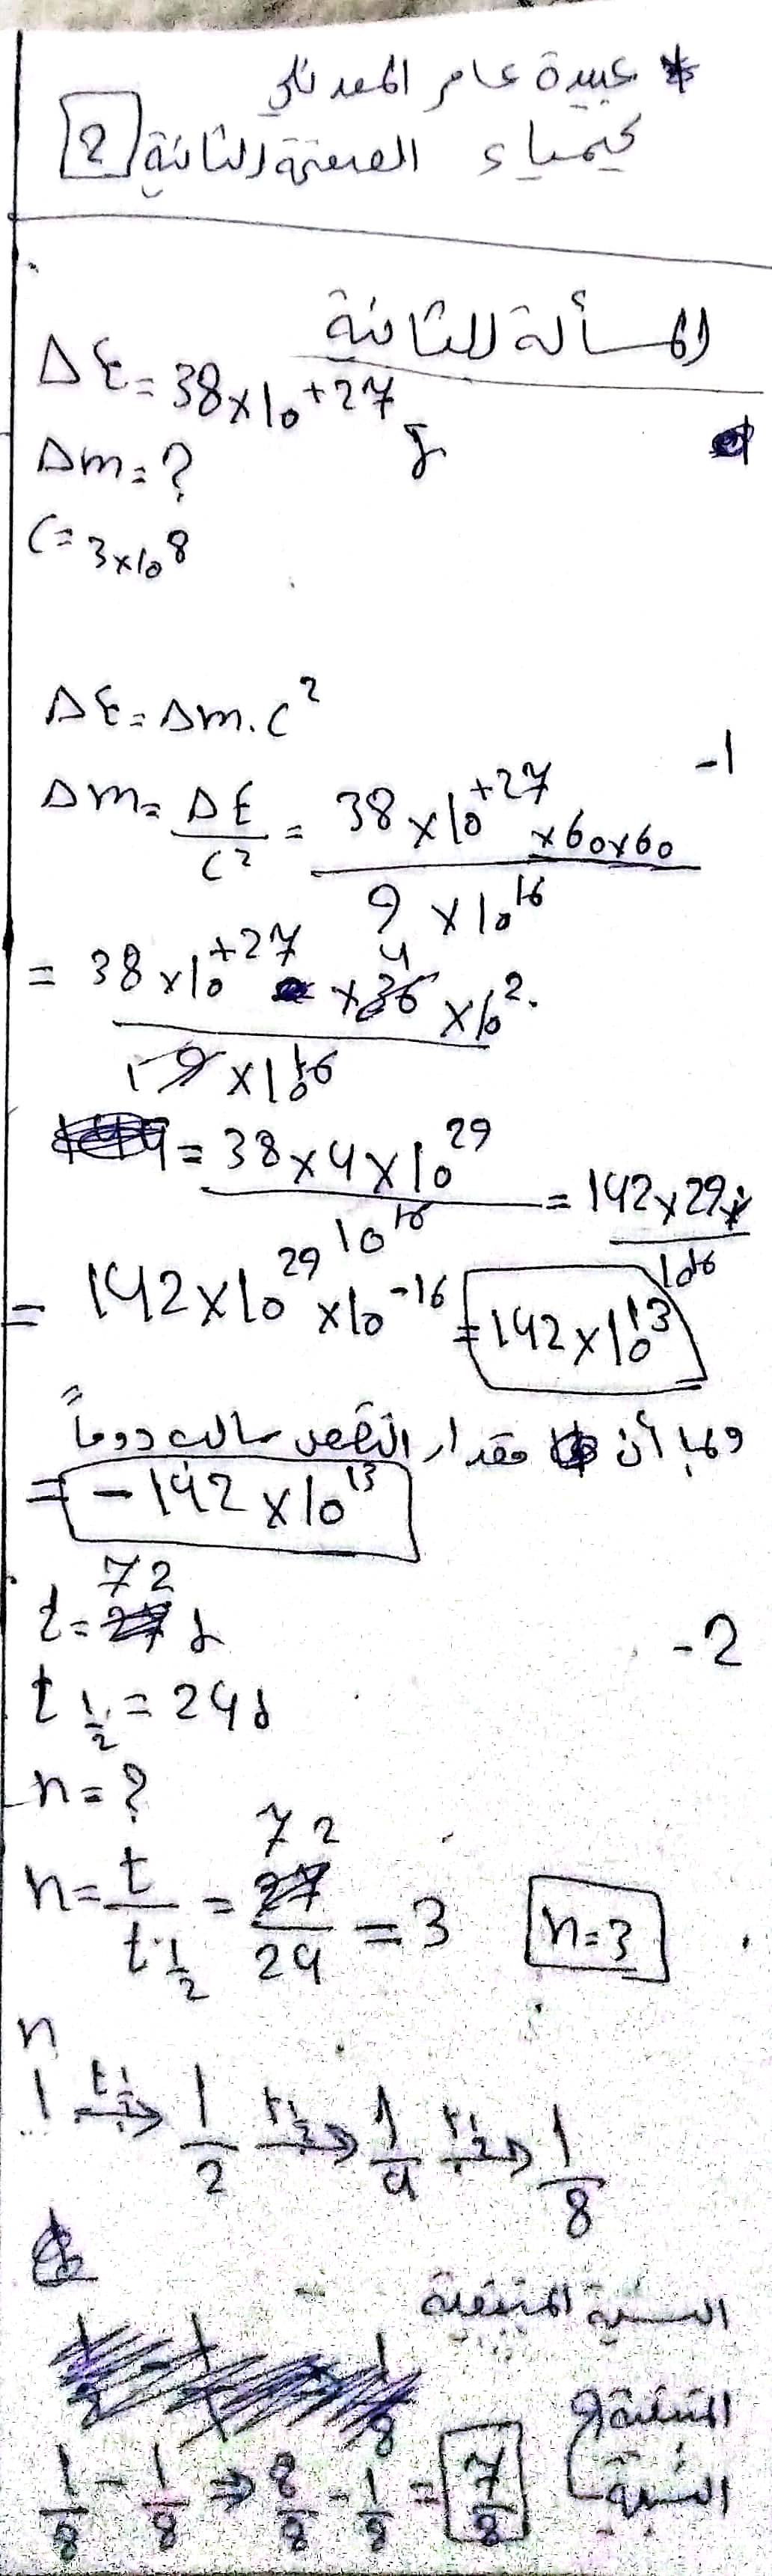 * عبيدة عامر المعدنلي
كيمياء الصفحة الثانية 2
المسألة الثانية
ΔE = 38×10^+27 J
Δm = ?
C = 3×10^8
ΔE = Δm.C^2
-1
Δm = ΔE/C^2 = 38×10^+27 ×60×60 / 9×10^16
= 38×10^+27 ×36 4 ×10^2 / 1 9×10^16
= 38×4×10^29 / 10^16 = 142×29 / 10^16
= 142×10^29 ×10^-16 = 142×10^13
وبما أن مقدار النقص سالب دوماً
= -142×10^13
-2
t = 72 d
t 1/2 = 24 d
n = ?
n = t / t 1/2 = 72/24 = 3 n=3
n
1 t1/2→ 1/2 t1/2→ 1/4 t1/2→ 1/8
النسبة المتبقية
المتبقية
النسبة
1/8 - 1/8 ⇒ 8/8 - 1/8 = 7/8